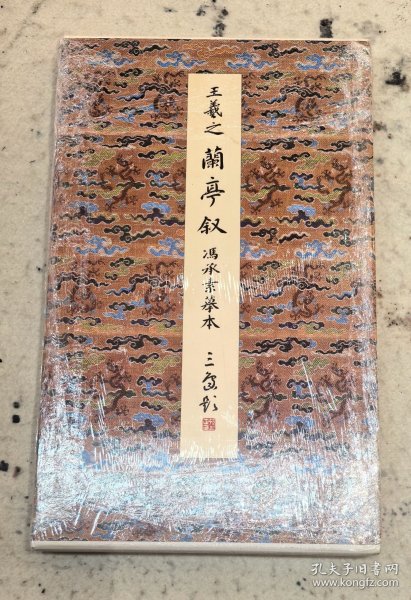 王羲之蘭亭叙馮承素摹本
孔夫子旧书网
www.kongfz.com